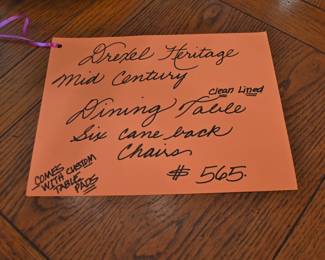 Drexel Heritage
Mid Century
clean Lined
Dining Table
Six cane back
Chairs
$ 565.
COMES
WITH CUSTOM
TABLE
PADS